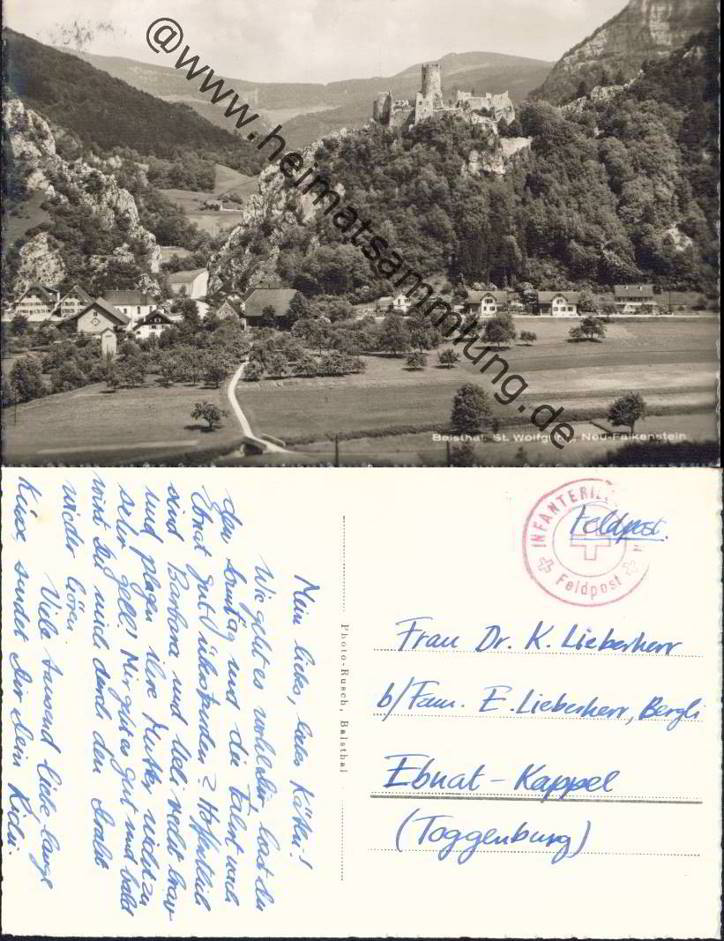 @www.heimatsammlung.de
Balsthal, St. Wolfgang, Neu-Falkenstein
Mein liebs, liebs Käthi!
Wie geht es wohl Dir, hast du
den Sonntag und die Fahrt nach
Ebnat gut überstanden? Hoffentlich
sind Barbara und Ueli recht brav
und plagen ihre Mutter nicht zu
sehr, gell! Mir geht es gut und bald
wirst Du mich durch den Draht
wieder hören.
Viele tausend liebe lange
Küsse sendet Dir Dein
Photo-Rusch, Balsthal
INFANTERIE
Feldpost
Feldpost.
Frau Dr. K. Lieberherr
b/Fam. E. Lieberherr, Bergli
Ebnat-Kappel
(Toggenburg)